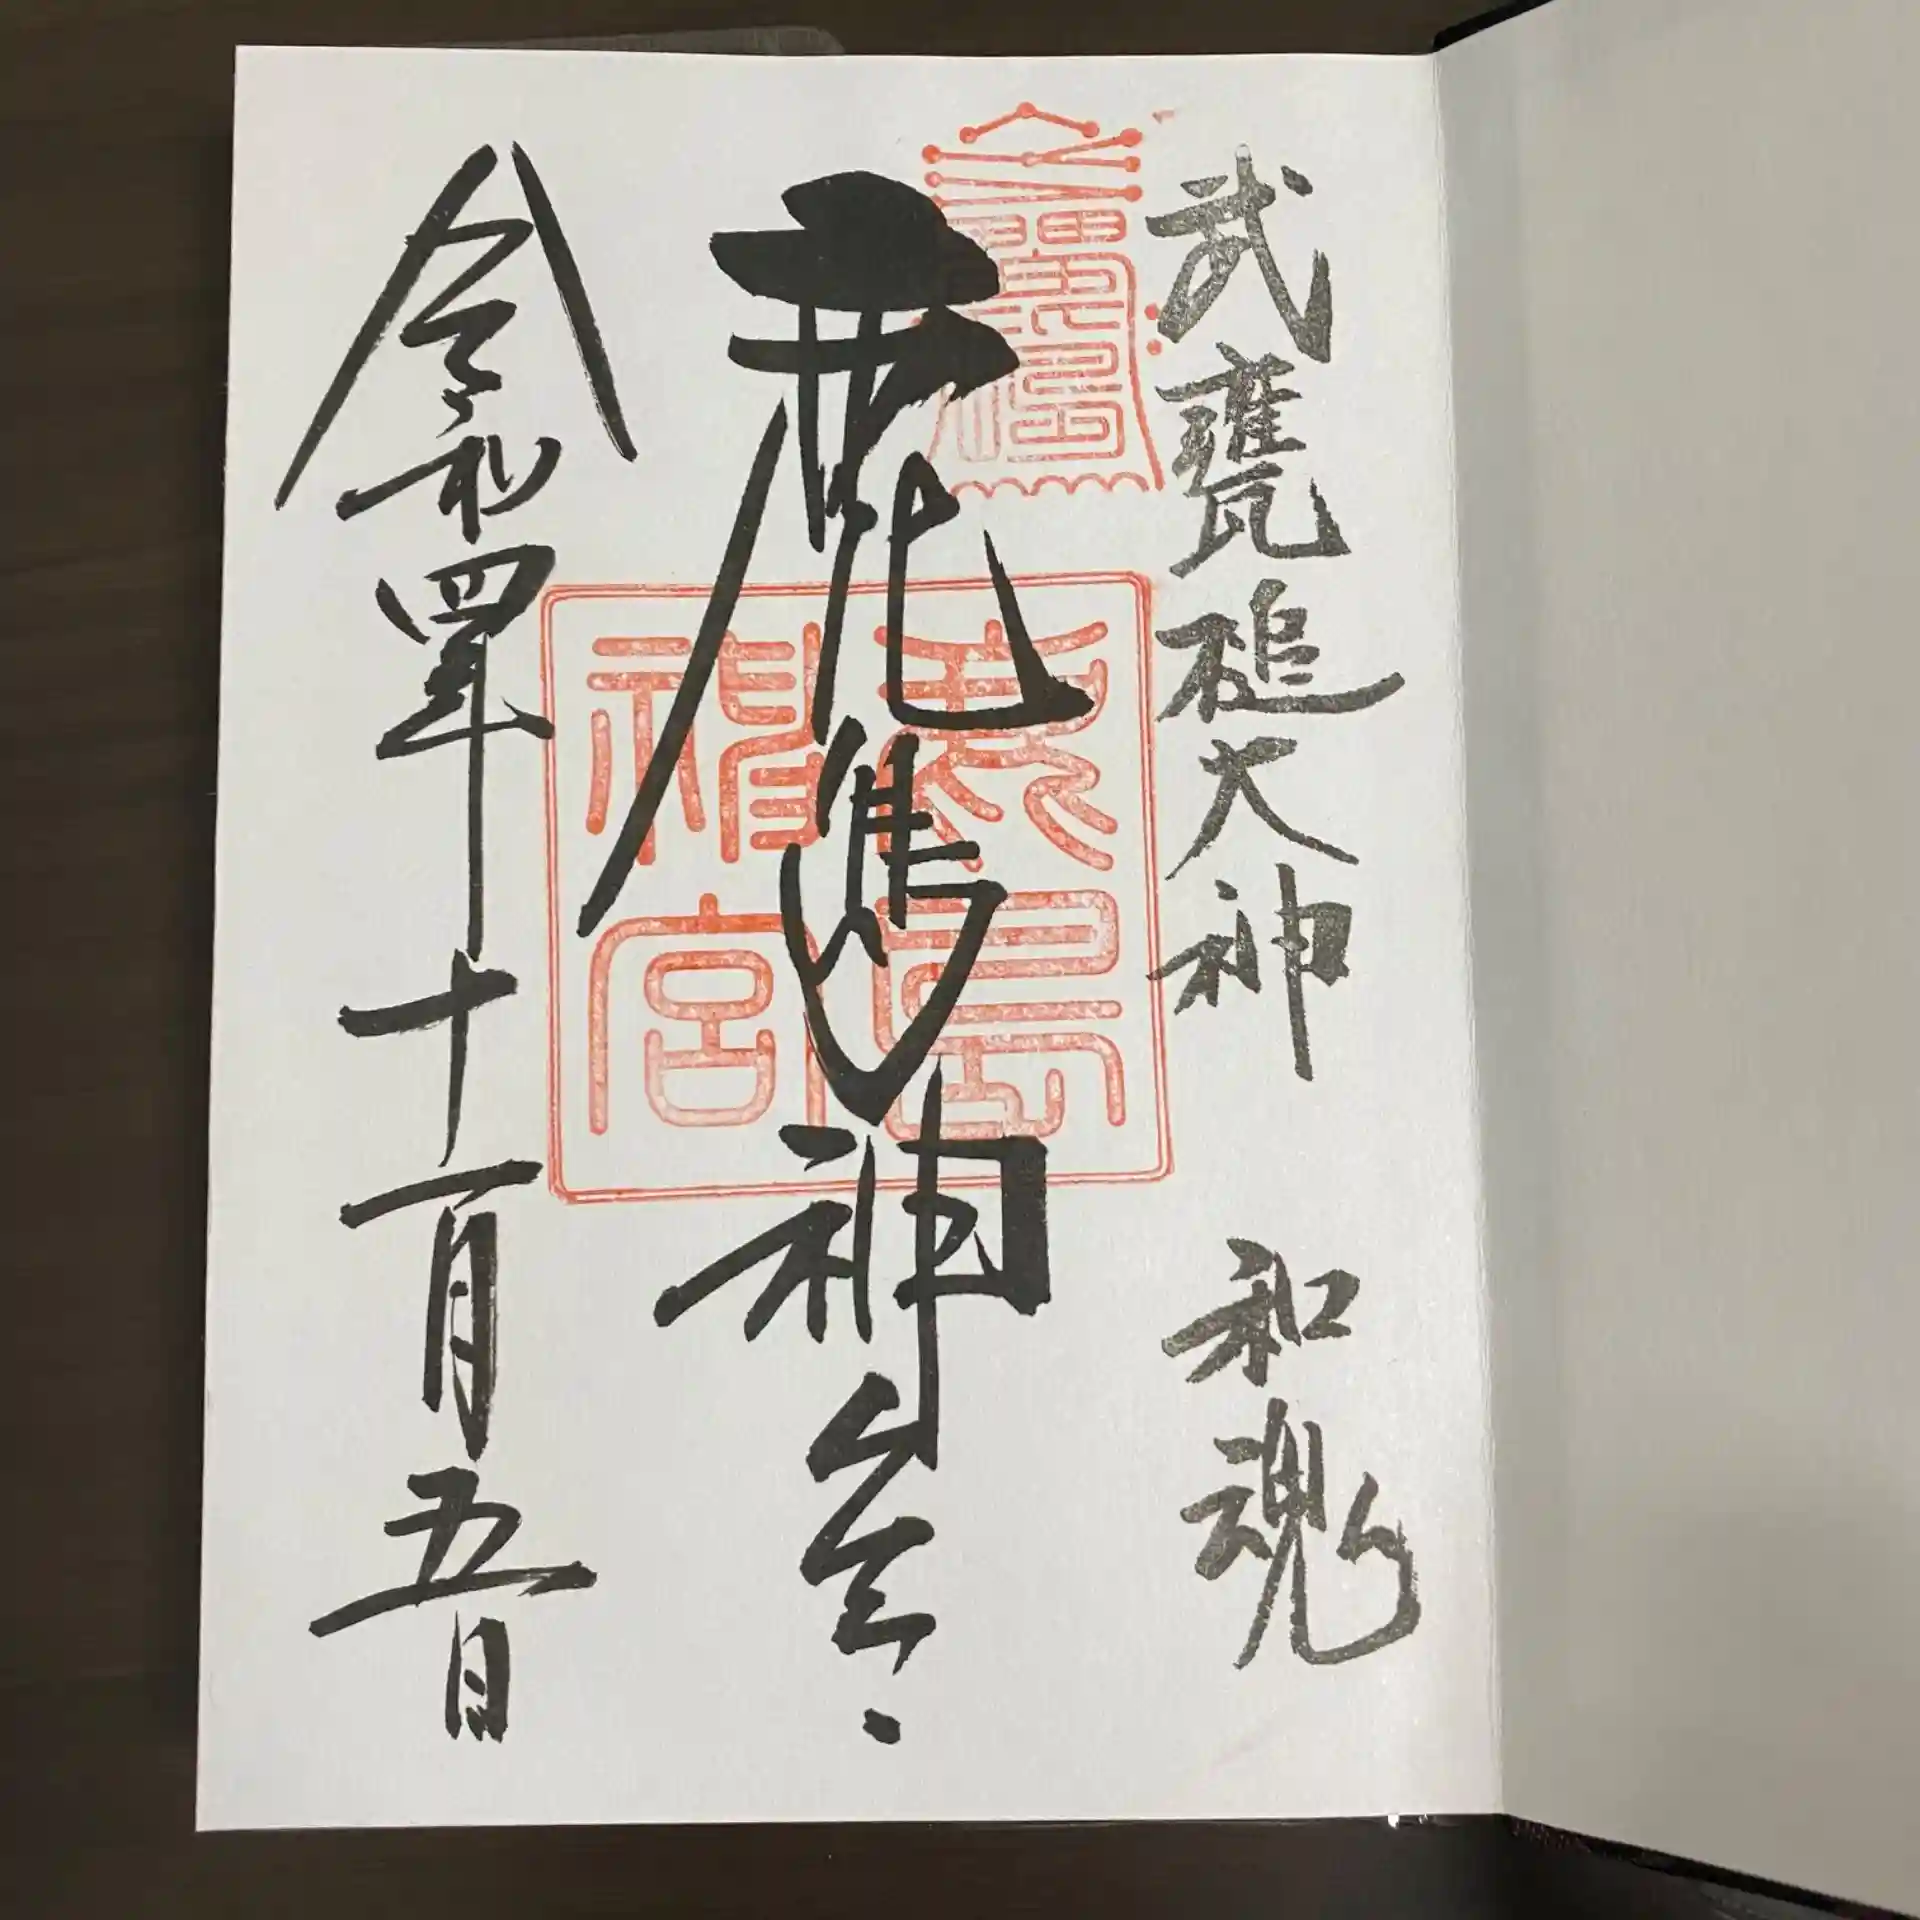 武甕槌大神 和魂
鹿島神宮
令和四年十一月五日